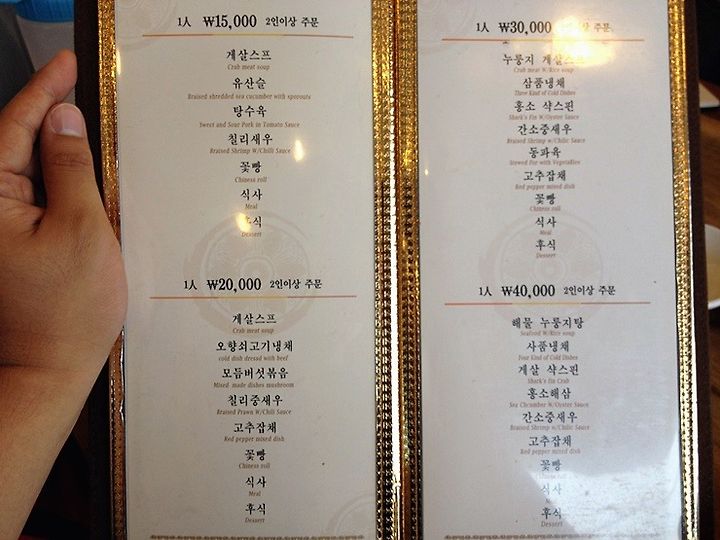 1人 ₩15,000 2인이상 주문
게살스프
Crab meat soup
유산슬
Braised shredded sea cucumber with sprouts
탕수육
Sweet and Sour Pork in Tomato Sauce
칠리새우
Braised Shrimp W/Chilli Sauce
꽃빵
Chiness roll
식사
Meal
후식
Dessert
1人 ₩20,000 2인이상 주문
게살스프
Crab meat soup
오향쇠고기냉채
cold dish dressd with beef
모듬버섯볶음
Mixed made dishes mushroom
칠리중새우
Braised Prawn W/Chili Sauce
고추잡채
Red pepper mixed dish
꽃빵
Chiness roll
식사
Meal
후식
Dessert
1人 ₩30,000 주문
누룽지 게살스프
Crab meat W/Rice soup
삼품냉채
Three Kind of Cold Dishes
홍소 샥스핀
Shark's Fin W/Oyster Sauce
간소중새우
Braised Shrimp w/Chilic Sauce
동파육
Stewed Por with Vegetables
고추잡채
Red pepper mixed dish
꽃빵
Chiness roll
식사
Meal
후식
Dessert
1人 ₩40,000 2인이상 주문
해물 누룽지탕
Seafood W/Rice soup
사품냉채
Four Kind of Cold Dishes
게살 샥스핀
Shark's Fin Crab
홍소해삼
Sea Chcumber W/Oyster Sauce
간소중새우
Braised Shrimp w/Chilic Sauce
고추잡채
Red pepper mixed dish
꽃빵
roll
식사
후식
Dessert